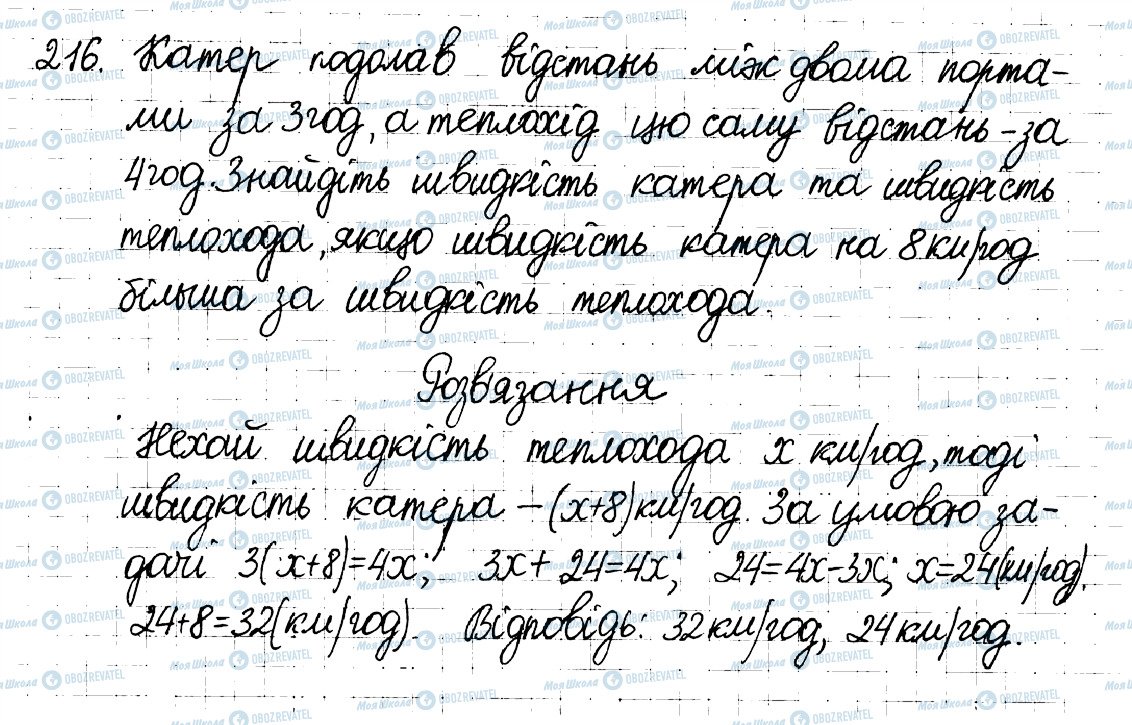 216. Катер подолав відстань між двома порта-
ми за 3 год, а теплохід цю саму відстань - за
4 год. Знайдіть швидкість катера та швидкість
теплохода, якщо швидкість катера на 8 км/год
більша за швидкість теплохода.
Розв'язання
Нехай швидкість теплохода x км/год, тоді
швидкість катера - (x+8) км/год. За умовою за-
дачі 3(x+8)=4x; 3x+24=4x; 24=4x-3x; x=24(км/год).
24+8=32(км/год). Відповідь: 32 км/год, 24 км/год.